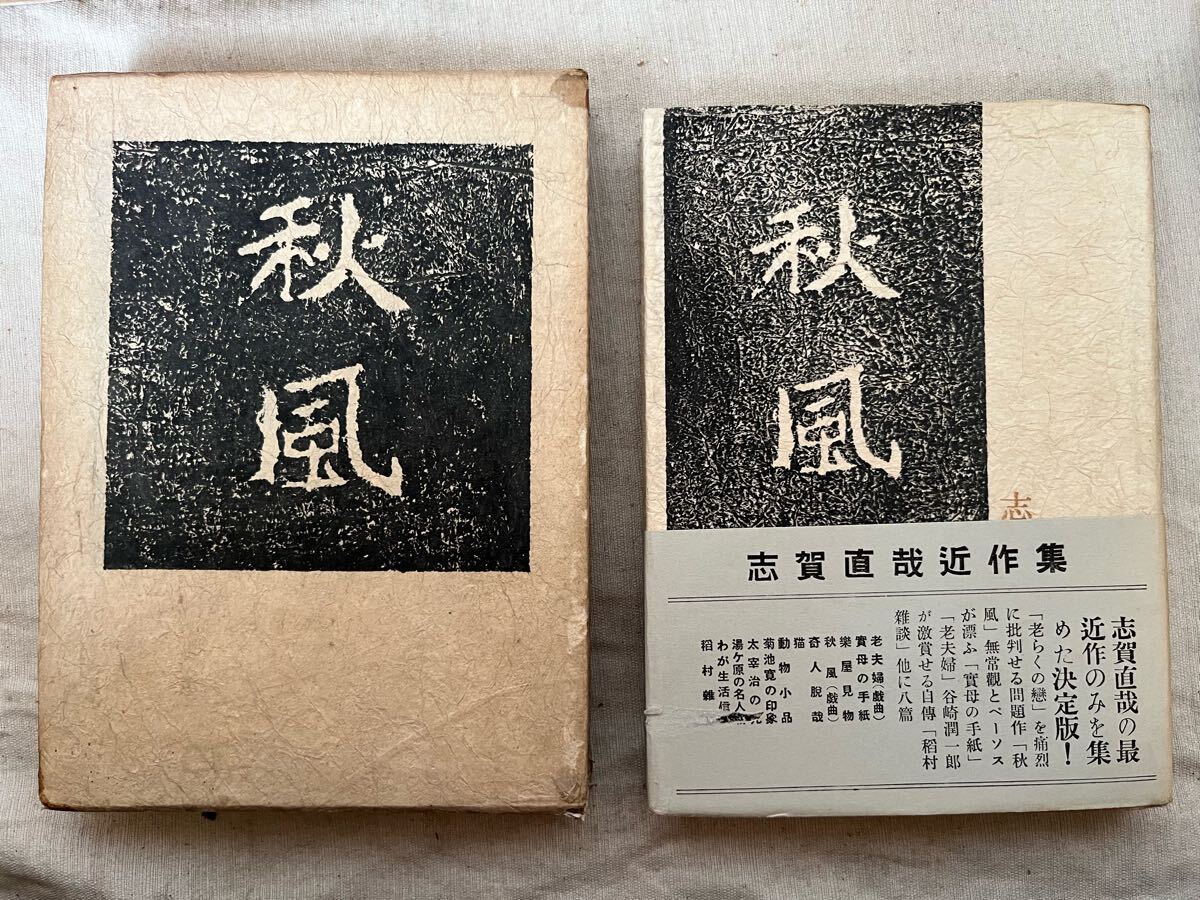 秋風
秋風
志
志賀直哉近作集
志賀直哉の最
近作のみを集
めた決定版！
「老らくの戀」を痛烈
に批判せる問題作「秋
風」無常觀とペーソス
が漂ふ「實母の手紙」
「老夫婦」谷崎潤一郎
が激賞せる自傳「稻村
雜談」他に八篇
老夫婦（戯曲）
實母の手紙
樂屋見物
秋風（戯曲）
奇人脫哉
猫
動物小品
菊池寛の印象
太宰治の
湯ケ原の名人
わが生活信
稻村雜